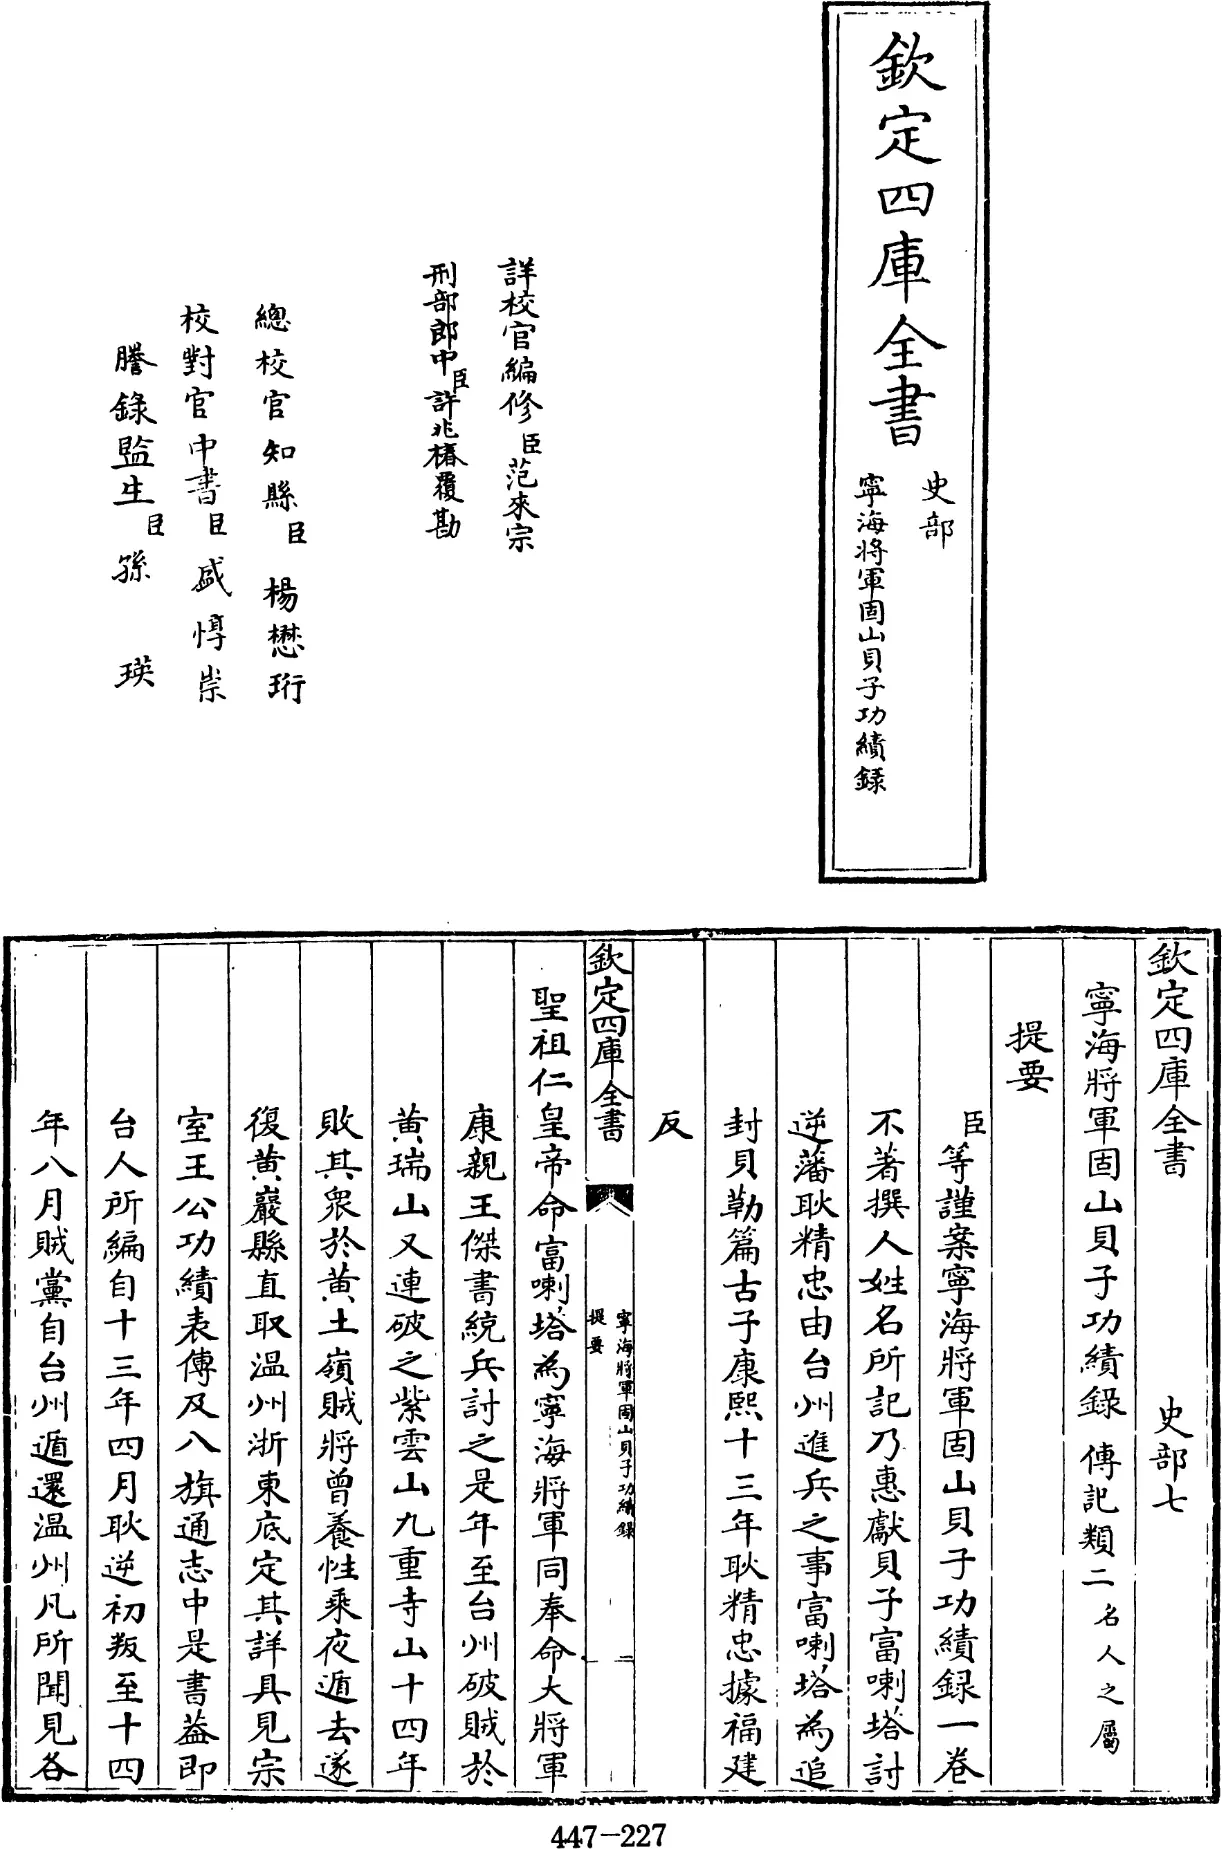 欽定四庫全書
史部
寧海將軍固山貝子功績錄
詳校官編修臣范來宗
刑部郎中臣許兆椿覆勘
總校官知縣臣楊懋珩
校對官中書臣盛惇崇
謄錄監生臣孫瑛
欽定四庫全書 史部七
寧海將軍固山貝子功績錄 傳記類二名人之屬
提要
臣等謹案寧海將軍固山貝子功績録一卷
不著撰人姓名所記乃惠獻貝子富喇塔討
逆藩耿精忠由台州進兵之事富喇塔為追
封貝勒篇古子康熙十三年耿精忠據福建
反
欽定四庫全書
寧海將軍固山貝子功績錄
提要
一
聖祖仁皇帝命富喇塔為寧海將軍同奉命大將軍
康親王傑書統兵討之是年至台州破賊於
黃瑞山又連破之紫雲山九重寺山十四年
敗其衆於黃土嶺賊將曾養性乘夜遁去遂
復黃巖縣直取溫州浙東底定其詳具見宗
室王公功績表傳及八旗通志中是書蓋即
台人所編自十三年四月耿逆初叛至十四
年八月賊黨自台州遁還溫州凡所聞見各
447-227